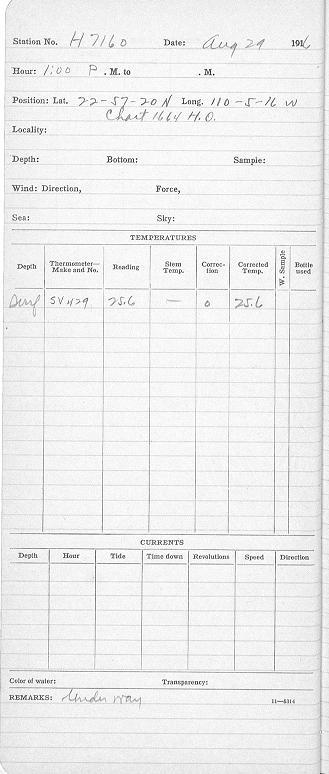 Station No. H7160 Date: Aug 29 1916
Hour: 1:00 P. M. to . M.
Position: Lat. 22-57-20 N Long. 110-5-16 W
Chart 1664 H.O.
Locality:
Depth: Bottom: Sample:
Wind: Direction, Force,
Sea: Sky:
TEMPERATURES
Depth Thermometer— Make and No. Reading Stem Temp. Correc- tion Corrected Temp. W. Sample Bottle used
Surf 25.6 — 0 25.6
CURRENTS
Depth Hour Tide Time down Revolutions Speed Direction
Color of water: Transparency:
REMARKS: Under way 11—5314